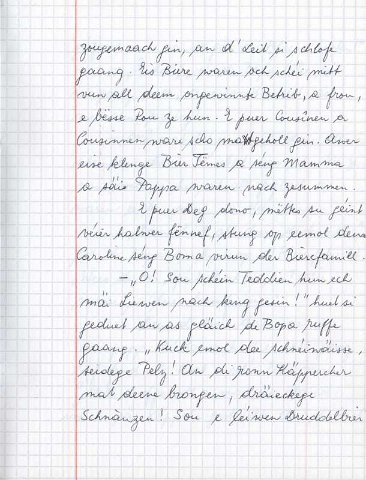 zougemaach gin, an d'Leit si schlofe
gaang. Eis Biere waren och schéi midd
vun all deem ongewinnte Betrib, a frou,
e bësse Rou ze hun. E puer Cousinen a
Cousinnen ware scho matgeholl gin. Awer
eise klenge Bier Témes a séng Mamma
a säin Pappa waren nach zesummen.
E puer Deg dono, mëttes su géint
veier halwer fënnef, stung op eemol dem
Caroline séng Boma virun der Bierefamill.
-„O! Sou schéin Teddien hun ech
mäi Liewen nach keng gesin!" huet si
geduet an as gläich de Bopa ruffe
gaang. „Kuck emol dee schnéiwäisse,
seidege Pelz! An di ronn Käppercher
mat deene brongen, dräieckege
Schnänzen! Sou e léiwen Druddelbier